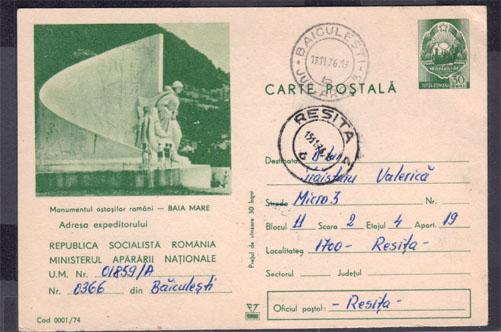 BAICULEȘTI
CARTE POȘTALĂ
POSTA ROMANA
30
REȘIȚA
Monumentul ostașilor români — BAIA MARE
Adresa expeditorului
REPUBLICA SOCIALISTĂ ROMÂNIA
MINISTERUL APĂRĂRII NAȚIONALE
U.M. Nr. 01859/A
Nr. 0366 din Băiculești
Cod 0001/74
Prețul de vînzare 30 bani
Destinatar
Valerică
Strada Micro 3 Nr.
Blocul 11 Scara 2 Etajul 4 Apart. 19
Localitatea 1700 - Reșița -
Sectorul Județul
Oficiul poștal: - Reșița -